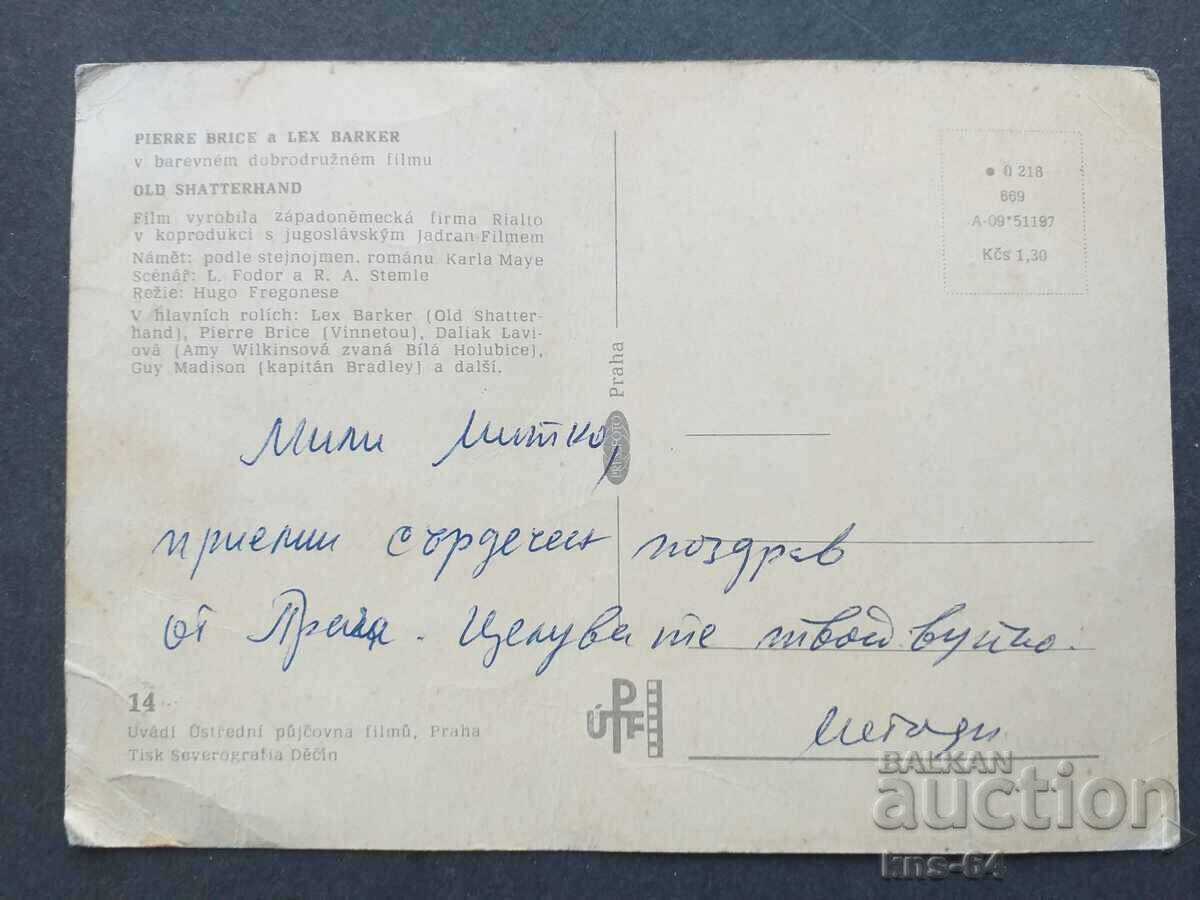 PIERRE BRICE a LEX BARKER
v barevném dobrodružném filmu
OLD SHATTERHAND
Film vyrobila západoněmecká firma Rialto
v koprodukci s jugoslávským Jadran-Filmem
Námět: podle stejnojmen. románu Karla Maye
Scénář: L. Fodor a R. A. Stemle
Režie: Hugo Fregonese
V hlavních rolích: Lex Barker (Old Shatter-
hand), Pierre Brice (Vinnetou), Daliak Lavi-
ová (Amy Wilkinsová zvaná Bílá Holubice),
Guy Madison (kapitán Bradley) a další.
● 0 218
669
A-09*51197
Kčs 1,30
PRESSFOTO Praha
Мили Митко,
приеми сърдечен поздрав
от Прага. Целува те твой вуйчо.
Методи
14
Uvádí Ústřední půjčovna filmů, Praha
Tisk Severografia Děčín
ÚPF
BALKAN
auction
kns-64